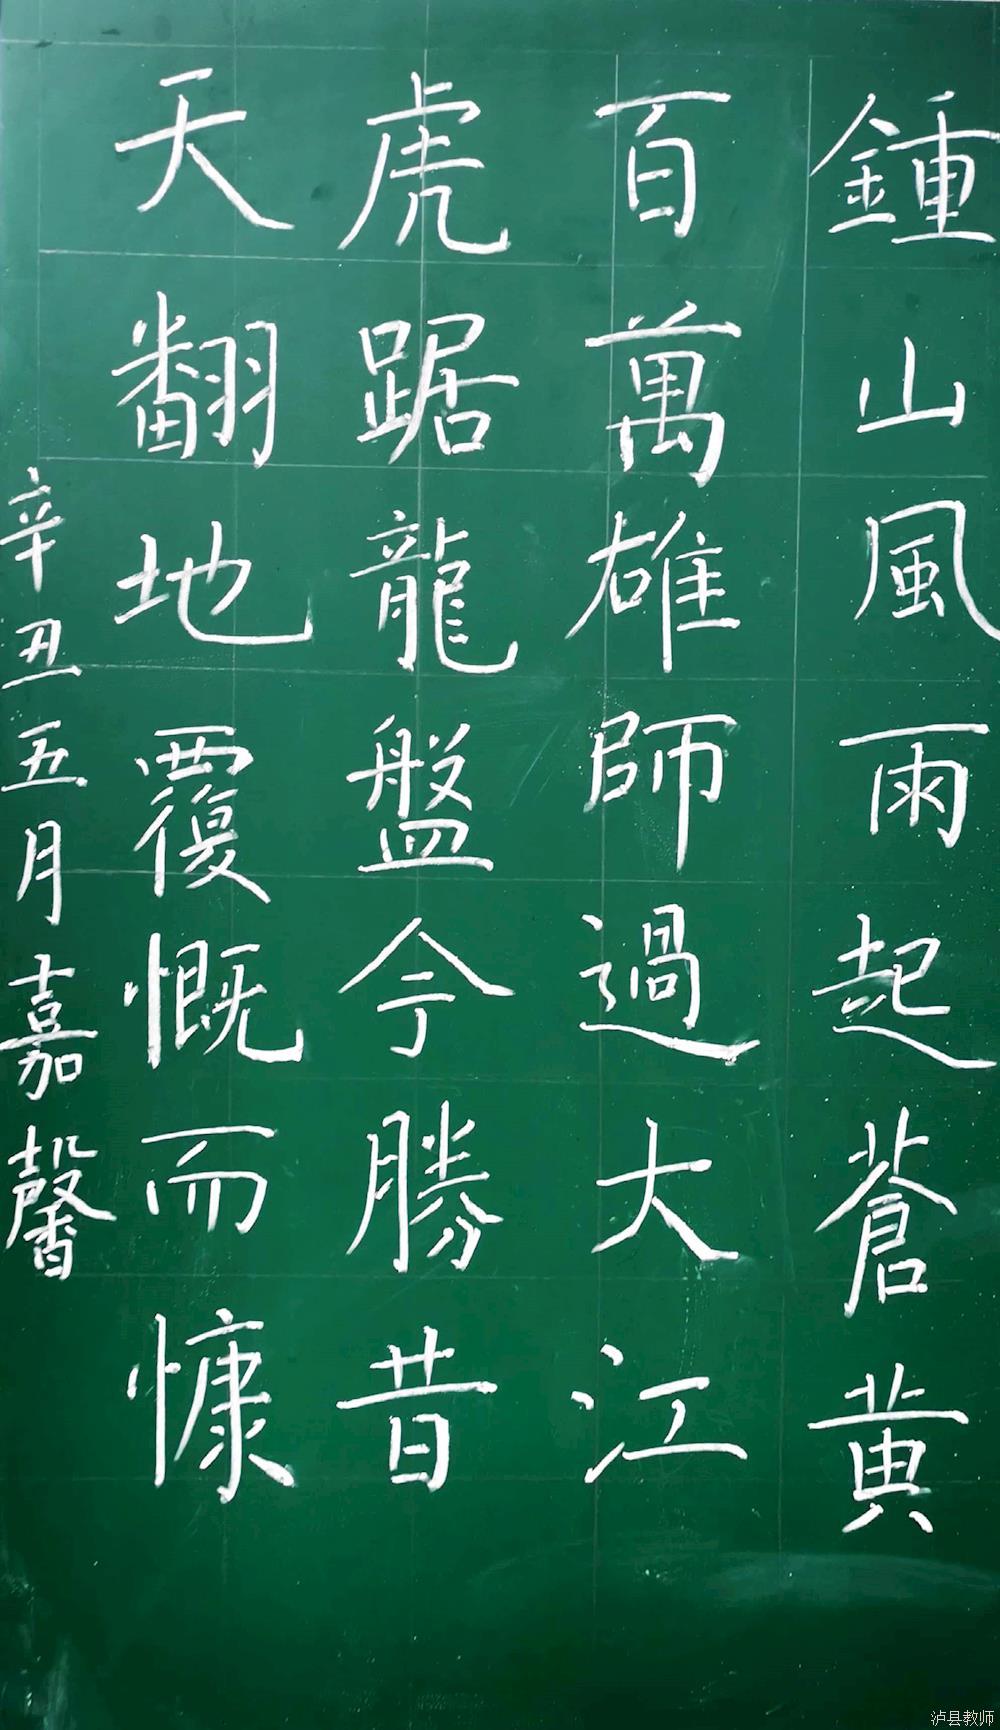 鍾山風雨起蒼黃
百萬雄師過大江
虎踞龍盤今勝昔
天翻地覆慨而慷
辛丑五月嘉馨
泸县教师